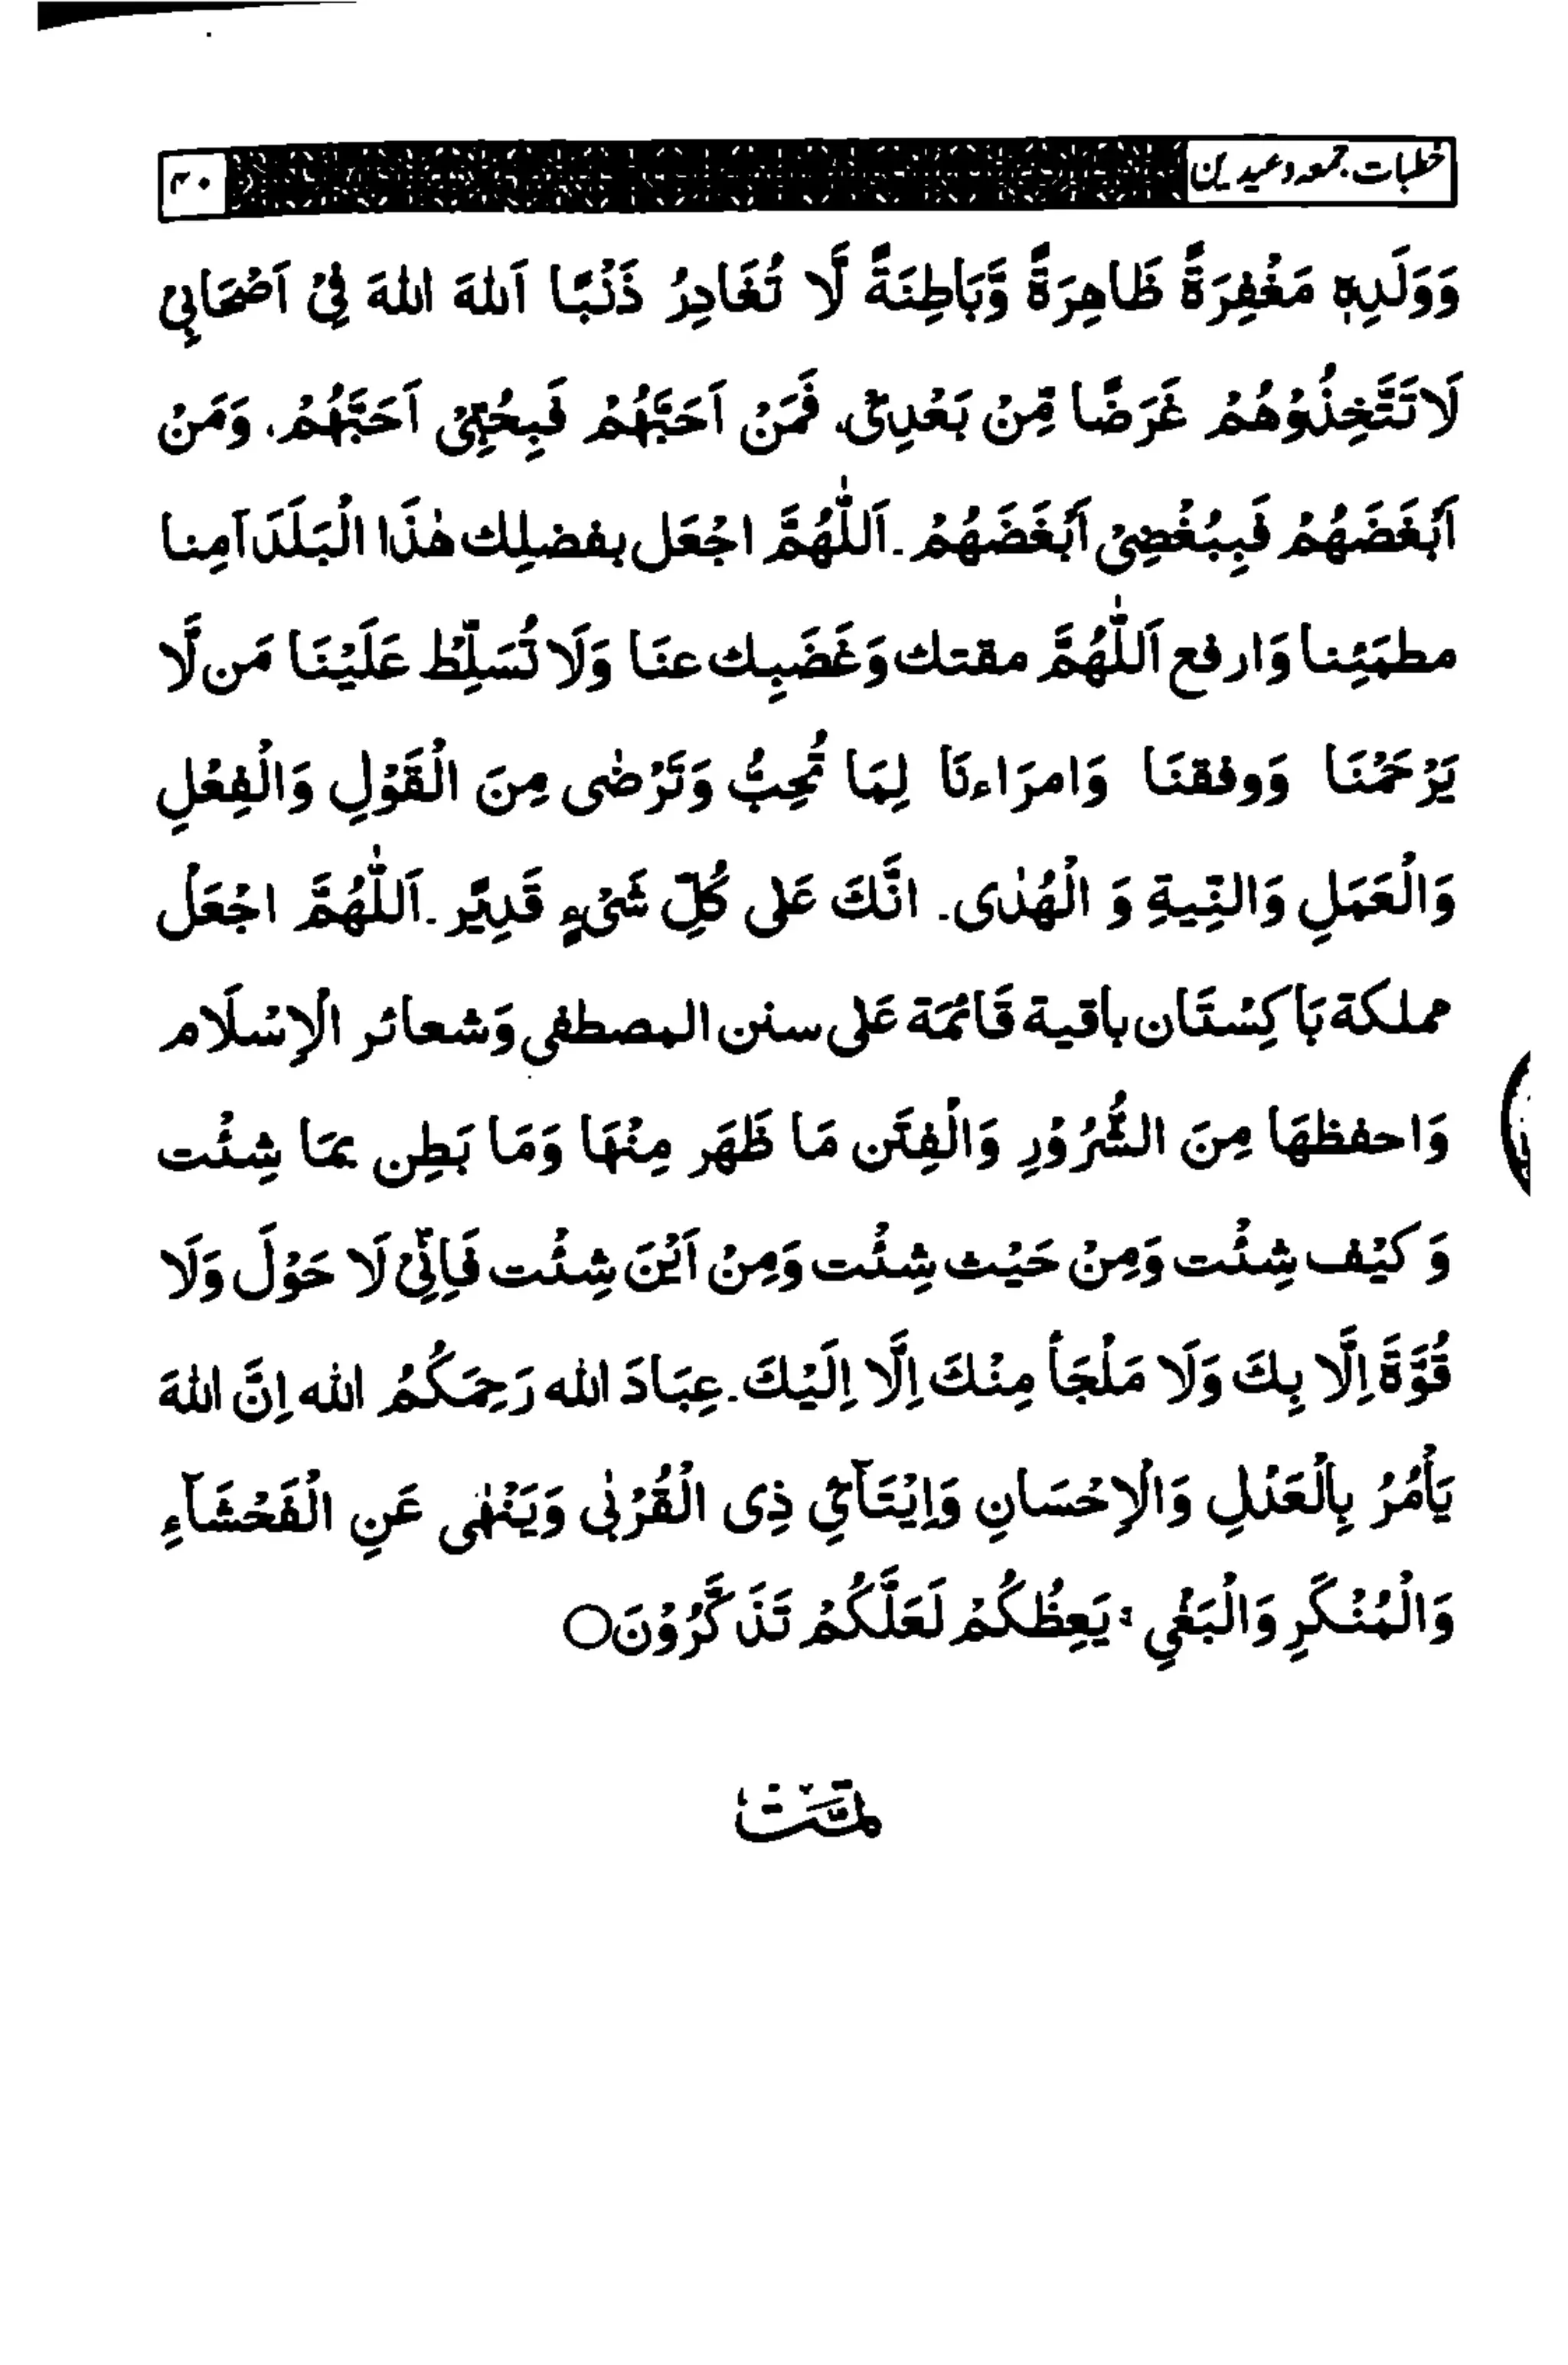 خطبات جمعہ و عیدین
۳۰
وَوَلَدِیْهِ مَغْفِرَةً ظَاهِرَةً وَّبَاطِنَةً لَّا تُغَادِرُ ذَنْبًا اَللهَ اللهَ فِیْ اَصْحَابِیْ
لَاتَتَّخِذُوْهُمْ غَرَضًا مِّنْ بَعْدِیْ، فَمَنْ اَحَبَّهُمْ فَبِحُبِّیْ اَحَبَّهُمْ، وَمَنْ
اَبْغَضَهُمْ فَبِبُغْضِیْ اَبْغَضَهُمْ۔ اَللّٰهُمَّ اجْعَل بفضلِك هٰذَا الْبَلَدَ آمِنا
مطمَئِنا وَارفع اَللّٰهُمَّ مقتك وَغَضَبِك عنَا وَلَا تُسَلِّطْ عَلَیْنَا مَن لَّا
یَرْحَمْنَا وَوفقنَا وَامرَاءنَا لِمَا تُحِبُّ وَتَرْضٰی مِنَ الْقَوْلِ وَالْفِعْلِ
وَالْعَمَلِ وَالنِّیةِ وَ الْهُدٰی۔ انَّكَ عَلٰی كُلِّ شَیْءٍ قَدِیْر۔ اَللّٰهُمَّ اجْعَلْ
مملكة بَاكِسْتَان باقیة قَائمَة عَلٰی سنن المصطفی وَشعائر الْاِسْلَام
وَاحفظهَا مِنَ الشُّرُوْرِ وَالْفِتَن مَا ظَهَر مِنْهَا وَمَا بَطِن بمَا شِئْت
وَ كیْف شِئْت وَمِنْ حَیْث شِئْت وَمِنْ اَیْنَ شِئْت فَاِنِّیْ لَا حَوْلَ وَلَا
قُوَّةَ اِلَّا بِكَ وَلَا مَلْجَأَ مِنْكَ اِلَّا اِلَیْكَ۔ عِبَادَ الله رَحِمَكُمْ الله اِنَّ اللهَ
یَاْمُرُ بِالْعَدْلِ وَالْاِحْسَانِ وَاِیْتَآئِ ذِی الْقُرْبٰی وَیَنْهٰی عَنِ الْفَحْشَآءِ
وَالْمُنْكَرِ وَالْبَغْیِ ۚ یَعِظُكُمْ لَعَلَّكُمْ تَذَكَّرُوْنَ○
تمت